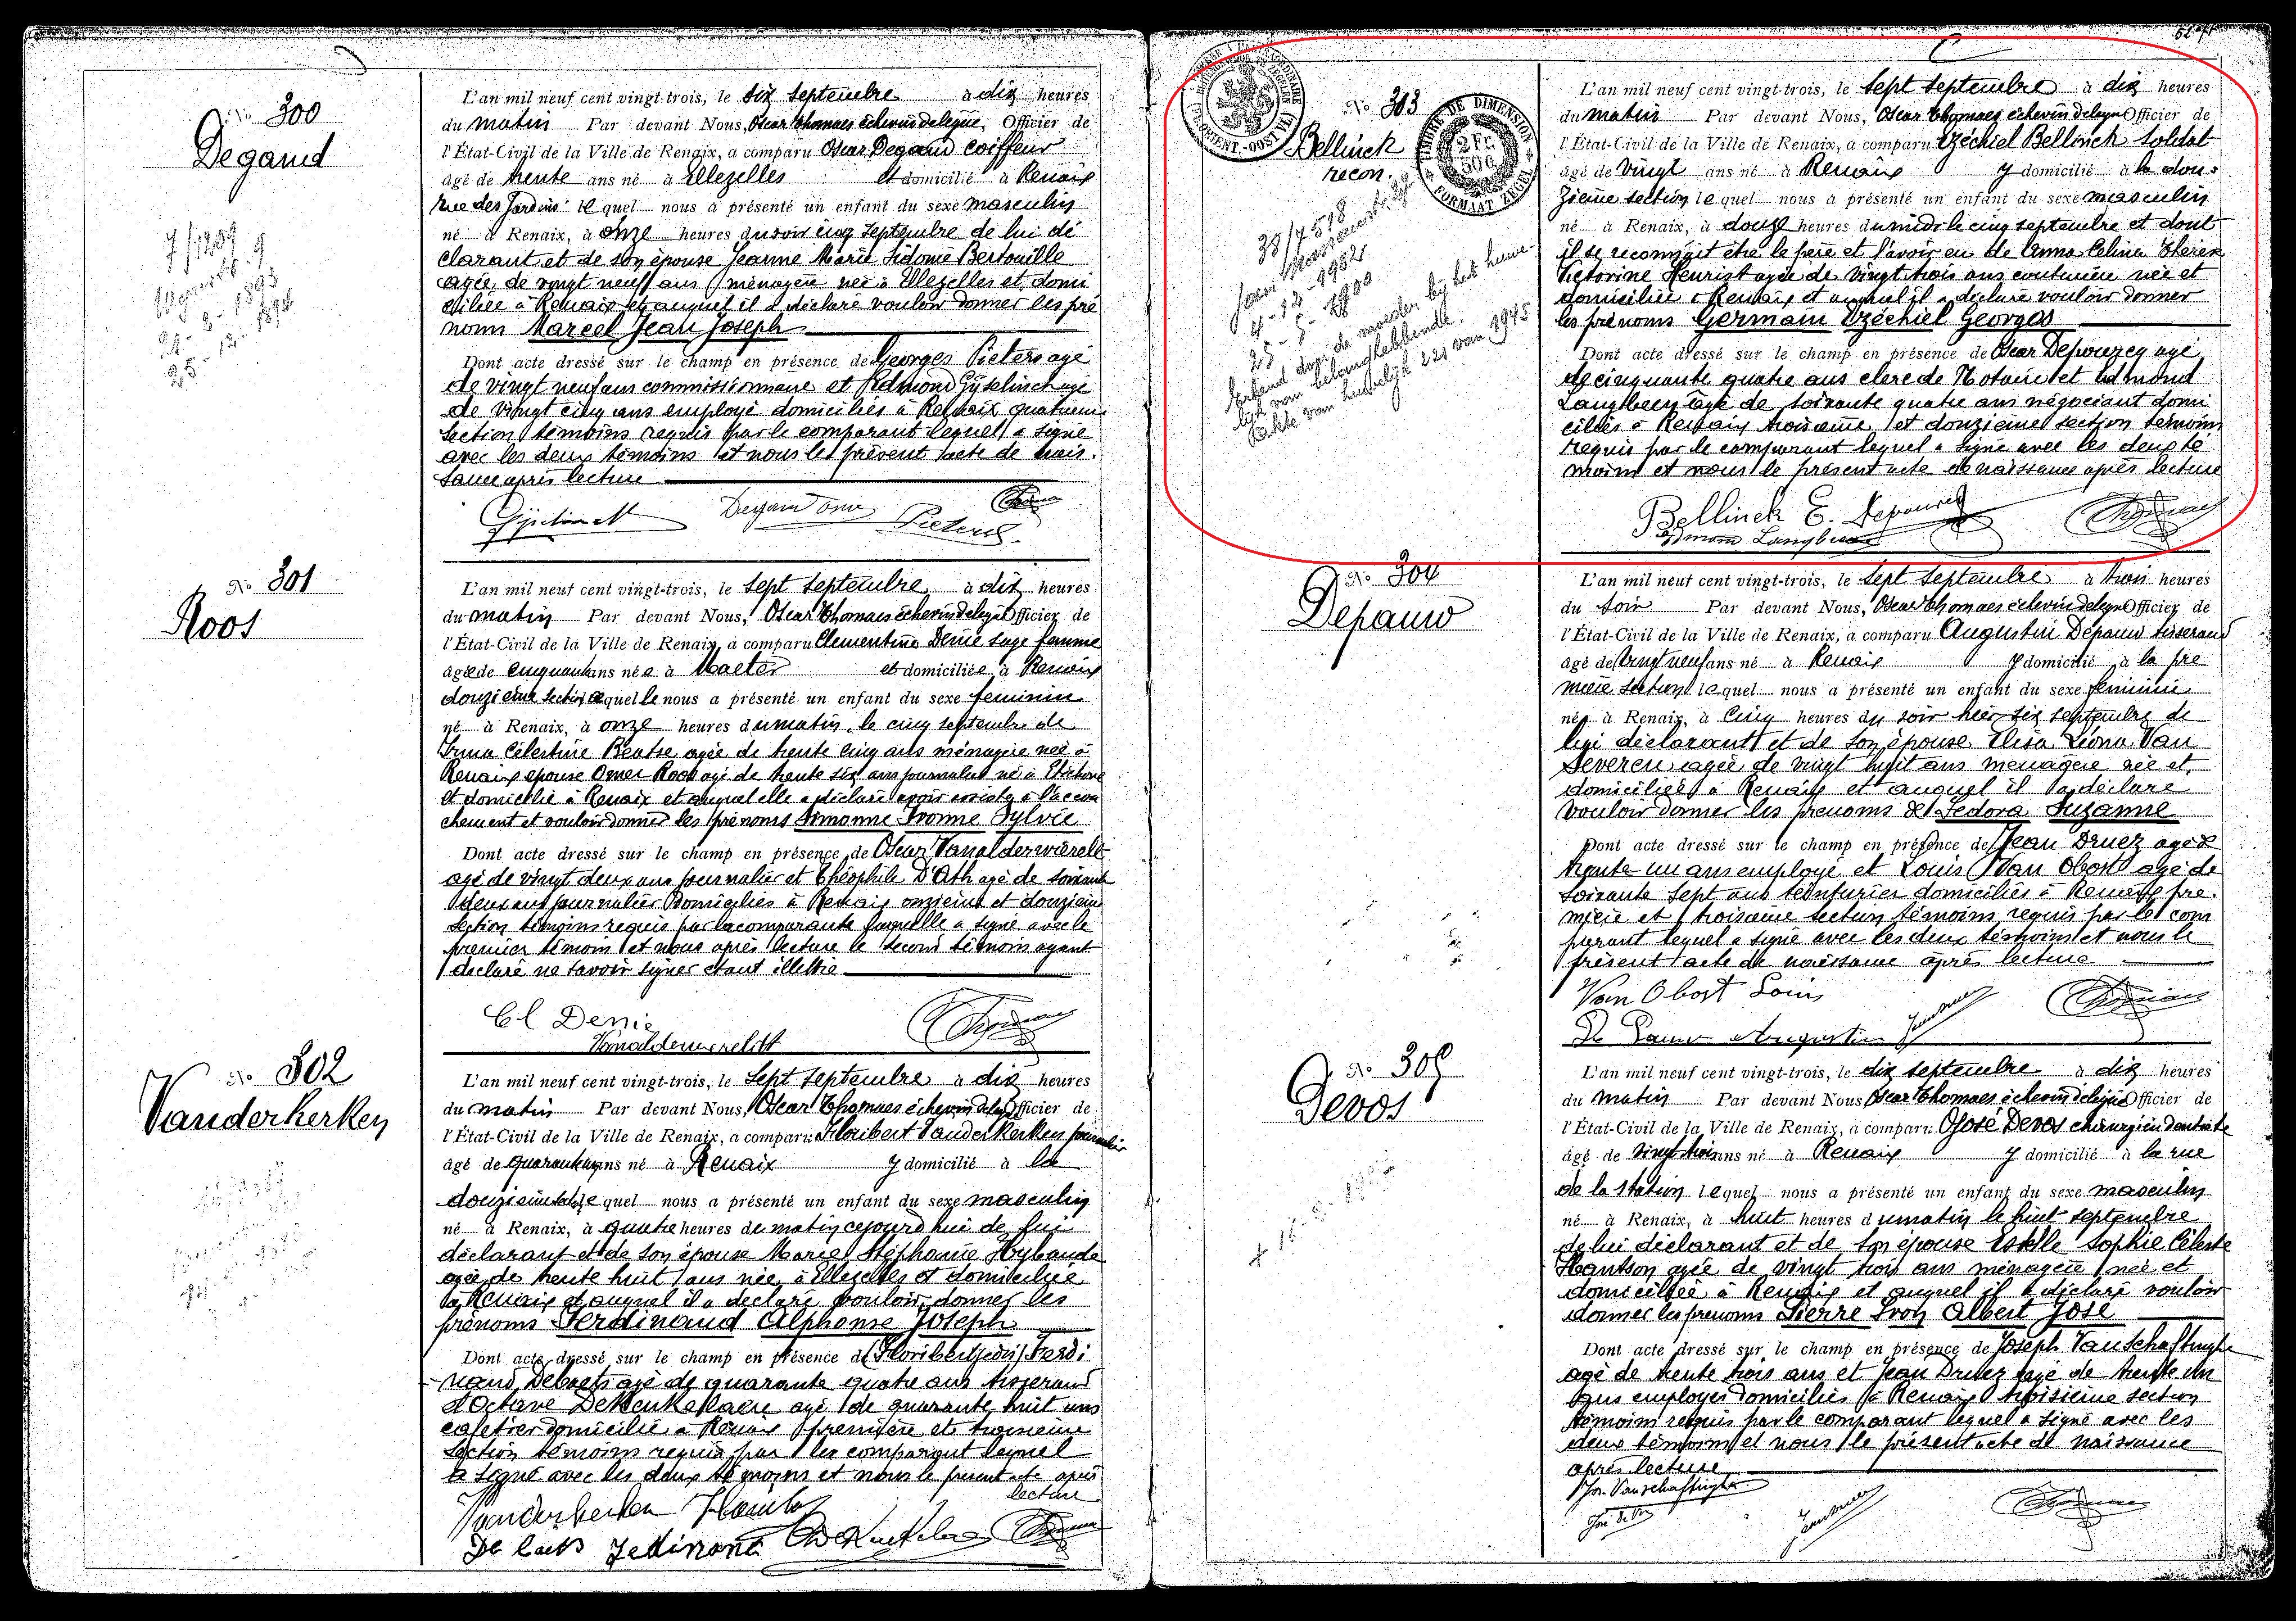 No 300
Degand
L'an mil neuf cent vingt-trois, le six septembre à dix heures
du matin Par devant Nous, Oscar Thomaes échevin délégué, Officier de
l'État-Civil de la Ville de Renaix, a comparu Oscar Degand coiffeur
âgé de trente ans né à Ellezelles et domicilié à Renaix
rue des Jardins lequel nous a présenté un enfant du sexe masculin
né à Renaix, à onze heures du soir cinq septembre de lui dé
clarant et de son épouse Jeanne Marie Sidonie Bertouille
agée de vingt neuf ans ménagère née à Ellezelles et domi
ciliée à Renaix et auquel il a déclaré vouloir donner les pré
noms Marcel Jean Joseph
Dont acte dressé sur le champ en présence de Georges Pieters agé
de vingt neuf ans commissionnaire et Edmond Gyselinck agé
de vingt cinq ans employé domiciliés à Renaix quatrième
section témoins requis par le comparant lequel a signé
avec les deux témoins et nous le présent acte de nais.
sance après lecture
No 301
Roos
L'an mil neuf cent vingt-trois, le sept septembre à dix heures
du matin Par devant Nous, Oscar Thomaes échevin délégué Officier de
l'État-Civil de la Ville de Renaix, a comparu Clementine Denie sage femme
âgée de cinquante ans née à Mater et domiciliée à Renaix
douzième section lequelle nous a présenté un enfant du sexe feminin
né à Renaix, à onze heures du matin, le cinq septembre de
Irma Célestine agée de trente cinq ans ménagère née à
Renaix épouse Omer Roos agé de trente six ans journalier né à Etichove
et domicilié à Renaix et auquel elle a déclaré avoir assisté à l'accou
chement et vouloir donner les prénoms Simonne Ivonne Sylvie
Dont acte dressé sur le champ en présence de Oscar Vanalderwierelt
agé de vingt deux ans journalier et Théophile D'Ath agé de soixante
deux ans journalier domiciliés à Renaix onzième et douzième
section témoins requis par la comparante laquelle a signé avec le
premier témoin et nous après lecture le second témoin ayant
déclaré ne savoir signer étant illettré
Cl Denie
No 302
Vanderkerken
L'an mil neuf cent vingt-trois, le sept septembre à dix heures
du matin Par devant Nous, Oscar Thomaes échevin délégué Officier de
l'État-Civil de la Ville de Renaix, a comparu Floribert Vanderkerken journalier
âgé de quarante ans né à Renaix y domicilié à la
douzième section lequel nous a présenté un enfant du sexe masculin
né à Renaix, à quatre heures du matin cejourd'hui de lui
déclarant et de son épouse Marie Stéphanie Hubaude
agée de trente huit ans née à Ellezelles et domiciliée
à Renaix et auquel il a déclaré vouloir donner les
prénoms Ferdinand Alphonse Joseph
Dont acte dressé sur le champ en présence de Ferdi
nand Debaets agé de quarante quatre ans tisserand
et Octave DeKeukelaere agé de quarante huit ans
cafetier domiciliés à Renaix première et troisième
section témoins requis par le comparant lequel
a signé avec les deux témoins et nous le présent acte après
lecture
52
No 303
Bellinck
recon.
TIMBRE DE DIMENSION
2 Fr.
50 c.
FORMAAT ZEGEL
4-12-1982
25-5-1900
Erkend door de moeder bij het huwe-
lijk van belanghebbende.
Akte van huwelijk 221 van 1945
L'an mil neuf cent vingt-trois, le sept septembre à dix heures
du matin Par devant Nous, Oscar Thomaes échevin délégué Officier de
l'État-Civil de la Ville de Renaix, a comparu Ezéchiel Bellinck soldat
âgé de vingt ans né à Renaix y domicilié à la dou-
zième section lequel nous a présenté un enfant du sexe masculin
né à Renaix, à douze heures du midi le cinq septembre et dont
il se reconnait être le père et l'avoir eu de Anna Celina
Victorine Henrist agée de vingt trois ans couturière née et
domiciliée à Renaix et auquel il a déclaré vouloir donner
les prénoms Germain Ezéchiel Georges
Dont acte dressé sur le champ en présence de Oscar Depourcq agé
de cinquante quatre ans clerc de Notaire et Edmond
Langhbeen agé de soixante quatre ans négociant domi
ciliés à Renaix troisième et douzième section témoins
requis par le comparant lequel a signé avec les deux té
moins et nous le présent acte de naissance après lecture
Bellinck E. Depourcq
No 304
Depauw
L'an mil neuf cent vingt-trois, le sept septembre à trois heures
du soir Par devant Nous, Oscar Thomaes échevin délégué Officier de
l'État-Civil de la Ville de Renaix, a comparu Augustin Depauw tisserand
âgé de vingt neuf ans né à Renaix y domicilié à la pre
mière section lequel nous a présenté un enfant du sexe feminin
né à Renaix, à cinq heures du soir hier six septembre de
lui déclarant et de son épouse Elisa Léona Van
Severen agée de vingt huit ans ménagère née et
domiciliée à Renaix et auquel il a déclaré
vouloir donner les prénoms de Fedora Suzanne
Dont acte dressé sur le champ en présence de Jean Druez agé de
trente un ans employé et Louis Van Obost agé de
soixante sept ans teinturier domiciliés à Renaix pre.
mière et troisième section témoins requis par le com
parant lequel a signé avec les deux témoins et nous le
présent acte de naissance après lecture
Van Obost Louis
De Pauw Augustin
No 305
Devos
L'an mil neuf cent vingt-trois, le dix septembre à dix heures
du matin Par devant Nous Oscar Thomaes échevin délégué Officier de
l'État-Civil de la Ville de Renaix, a comparu José Devos chirurgien dentiste
âgé de vingt trois ans né à Renaix y domicilié à la rue
de la Station lequel nous a présenté un enfant du sexe masculin
né à Renaix, à huit heures du matin le huit septembre
de lui déclarant et de son épouse Estelle Sophie Céleste
Hantson agée de vingt trois ans ménagère née et
domiciliée à Renaix et auquel il a déclaré vouloir
donner les prénoms Pierre Albert José
Dont acte dressé sur le champ en présence de Joseph Vanschaftinghe
agé de trente trois ans et Jean Druez agé de trente un
ans employés domiciliés à Renaix troisième section
témoins requis par le comparant lequel a signé avec les
deux témoins et nous le présent acte de naissance
après lecture
Jos. Vanschaftinghe